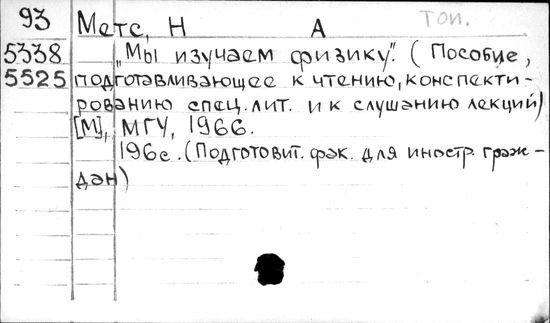 93 Метс, Н А Топ.
5338 „Мы изучаем физику". (Пособие,
5525 подготавливающее к чтению, конспекти-
рованию спец. лит. и к слушанию лекций)
[М], МГУ, 1966.
196с. (Подготовит. фак. для иностр. граж-
дан)